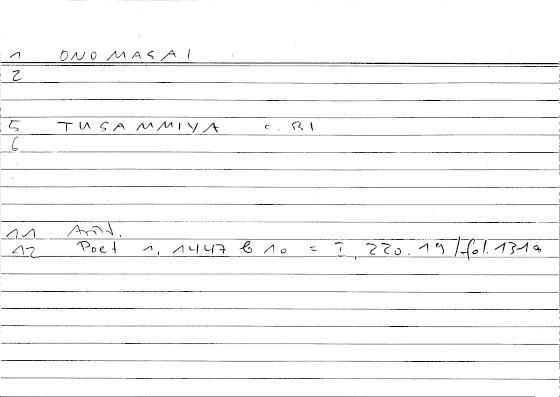 1 ONOMASAI
2
5 TUSAMMIYA c. RI
6
11 Arist.
12 Poet 1, 1447 b 10 = I, 220.19 / fol. 131a